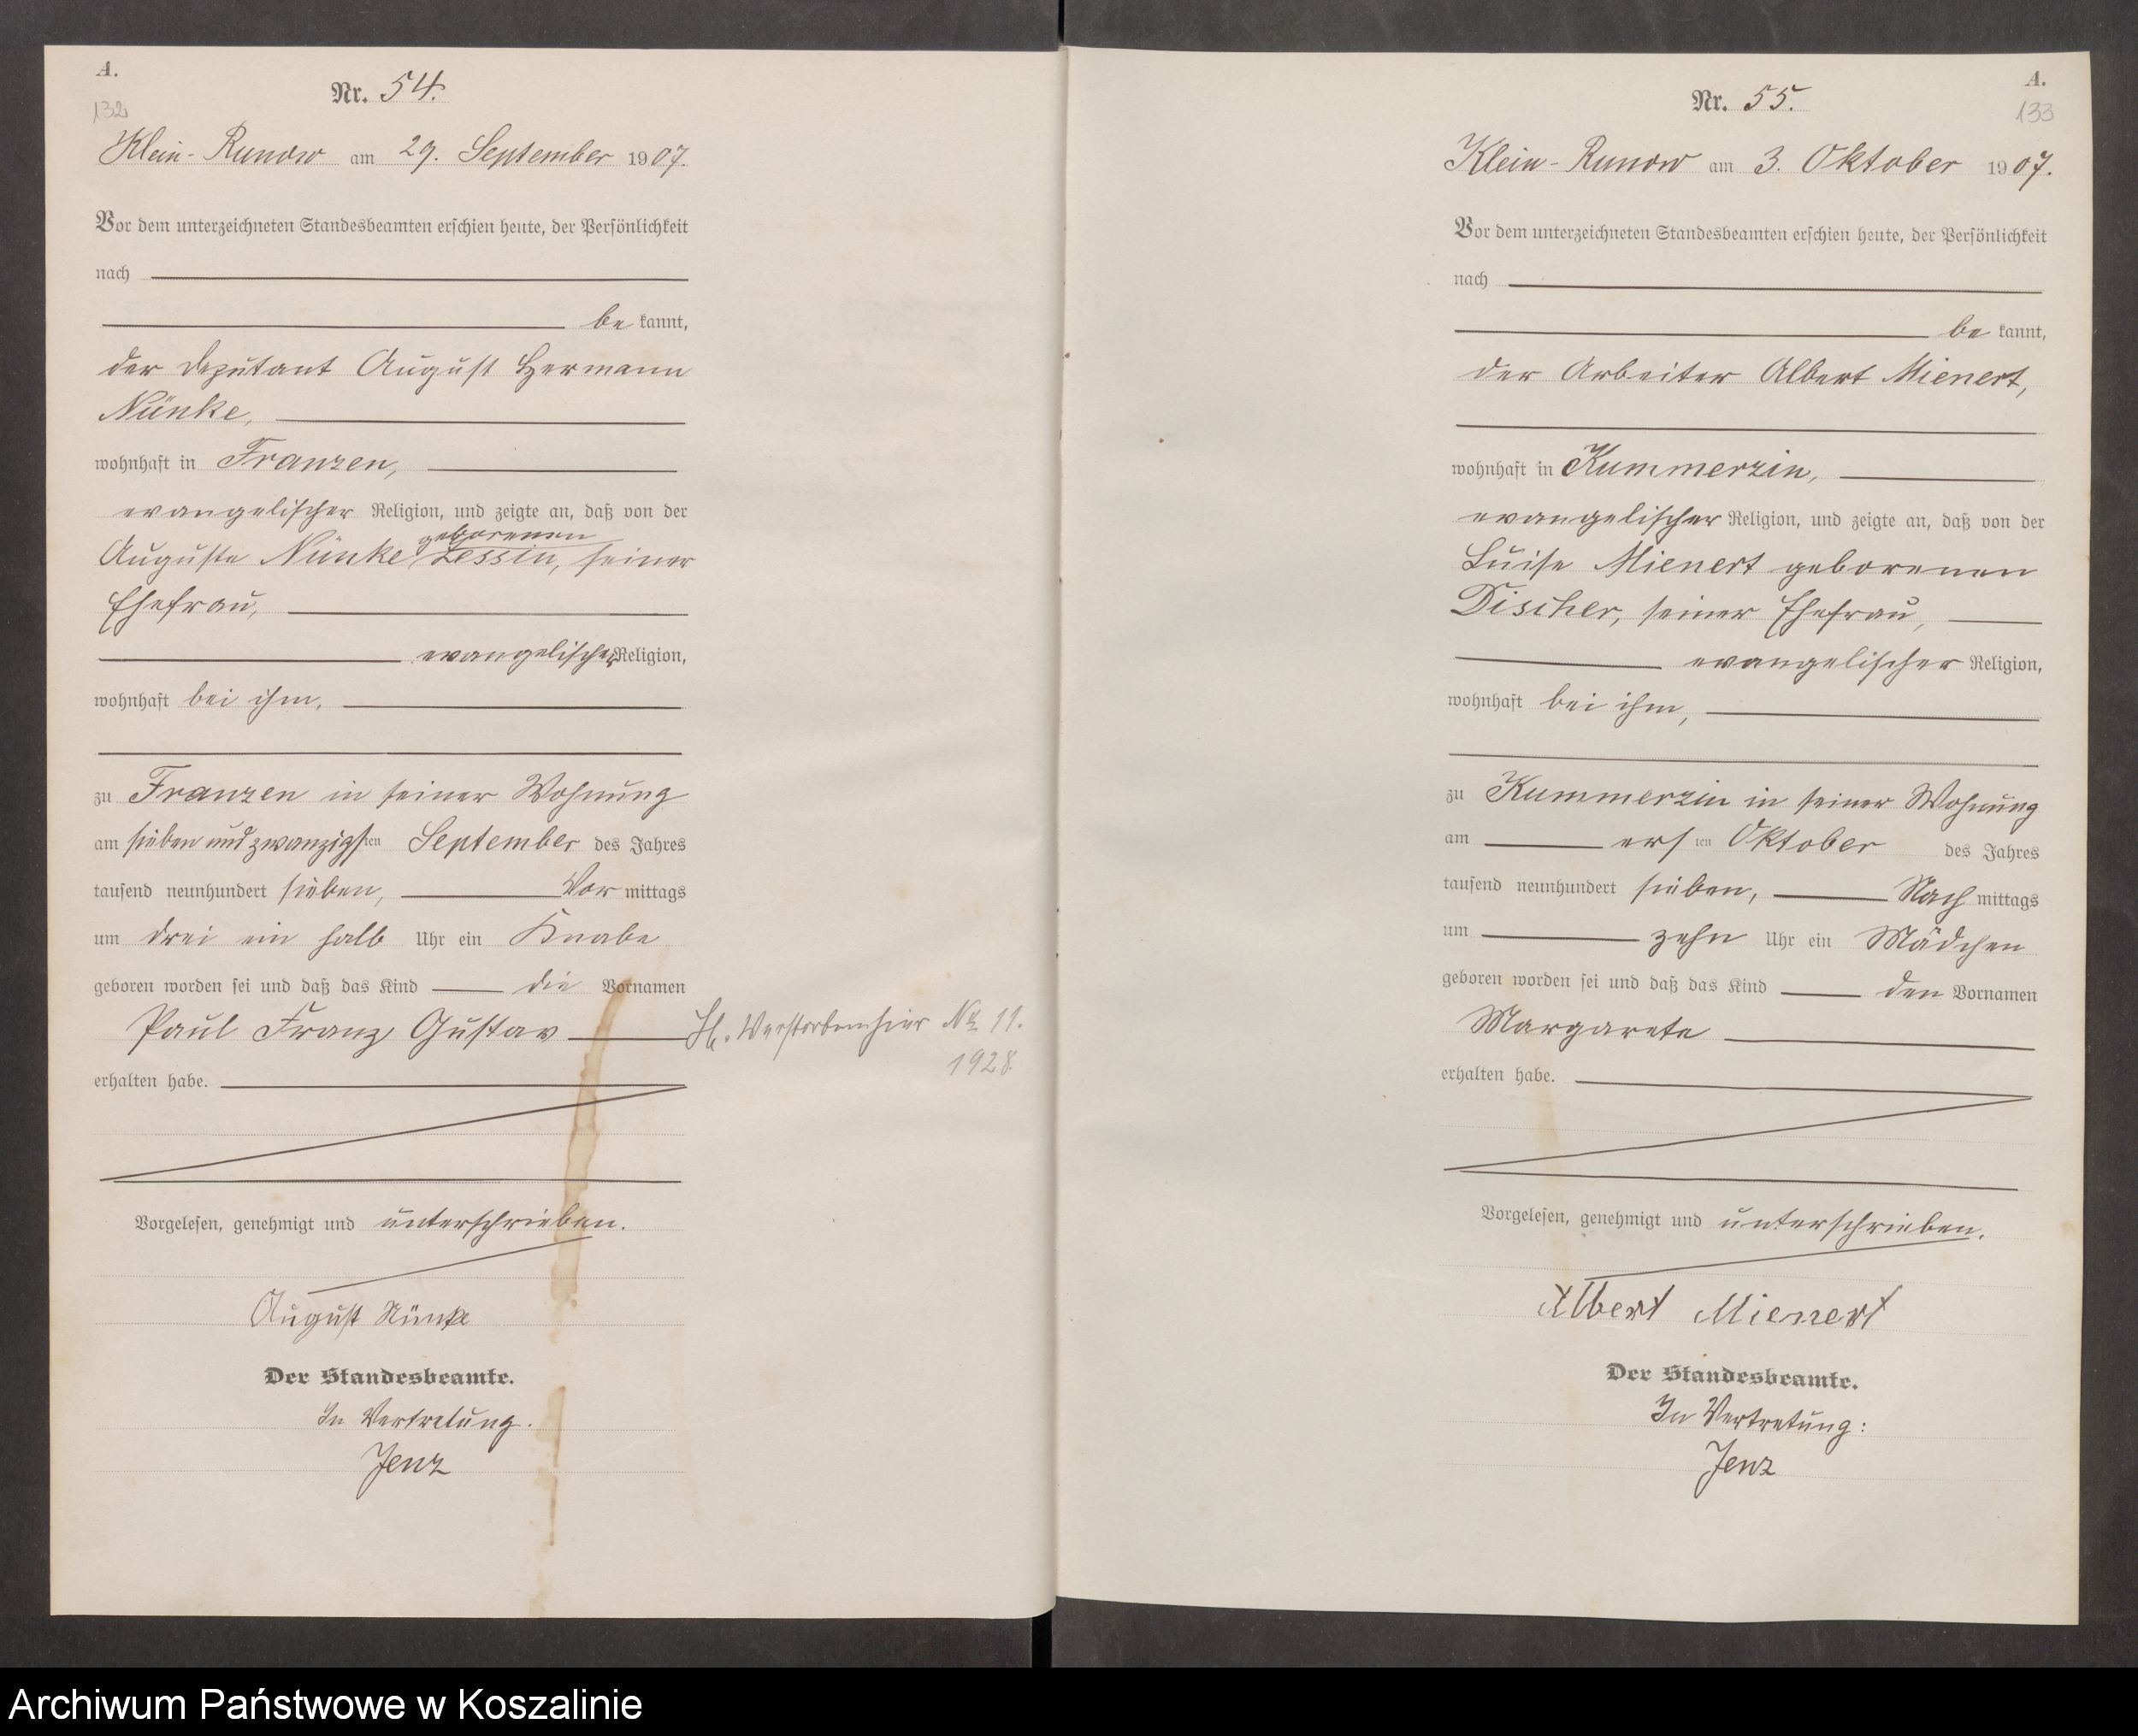 A.
132
Nr. 54.
Klein-Runow am 29. September 1907.
Vor dem unterzeichneten Standesbeamten erschien heute, der Persönlichkeit
nach
be kannt,
der Deputant August Hermann
Nünke,
wohnhaft in Franzen,
evangelischer Religion, und zeigte an, daß von der
geborenen
Auguste Nünke Lessin, seiner
Ehefrau,
evangelischer Religion,
wohnhaft bei ihm,
zu Franzen in seiner Wohnung
am sieben und zwanzigsten September des Jahres
tausend neunhundert sieben, Vor mittags
um drei ein halb Uhr ein Knabe
geboren worden sei und daß das Kind die Vornamen
Paul Franz Gustav
erhalten habe.
H. Verstorben hier № 11.
1928
Vorgelesen, genehmigt und unterschrieben.
August Nünke
Der Standesbeamte.
In Vertretung.
Jenz
A.
133
Nr. 55.
Klein-Runow am 3. Oktober 1907.
Vor dem unterzeichneten Standesbeamten erschien heute, der Persönlichkeit
nach
be kannt,
der Arbeiter Albert Mienert,
wohnhaft in Kummerzin,
evangelischer Religion, und zeigte an, daß von der
Luise Mienert geborenen
Discher, seiner Ehefrau,
evangelischer Religion,
wohnhaft bei ihm,
zu Kummerzin in seiner Wohnung
am ersten Oktober des Jahres
tausend neunhundert sieben, Nach mittags
um zehn Uhr ein Mädchen
geboren worden sei und daß das Kind den Vornamen
Margarete
erhalten habe.
Vorgelesen, genehmigt und unterschrieben.
Albert Mienert
Der Standesbeamte.
In Vertretung:
Jenz
Archiwum Państwowe w Koszalinie